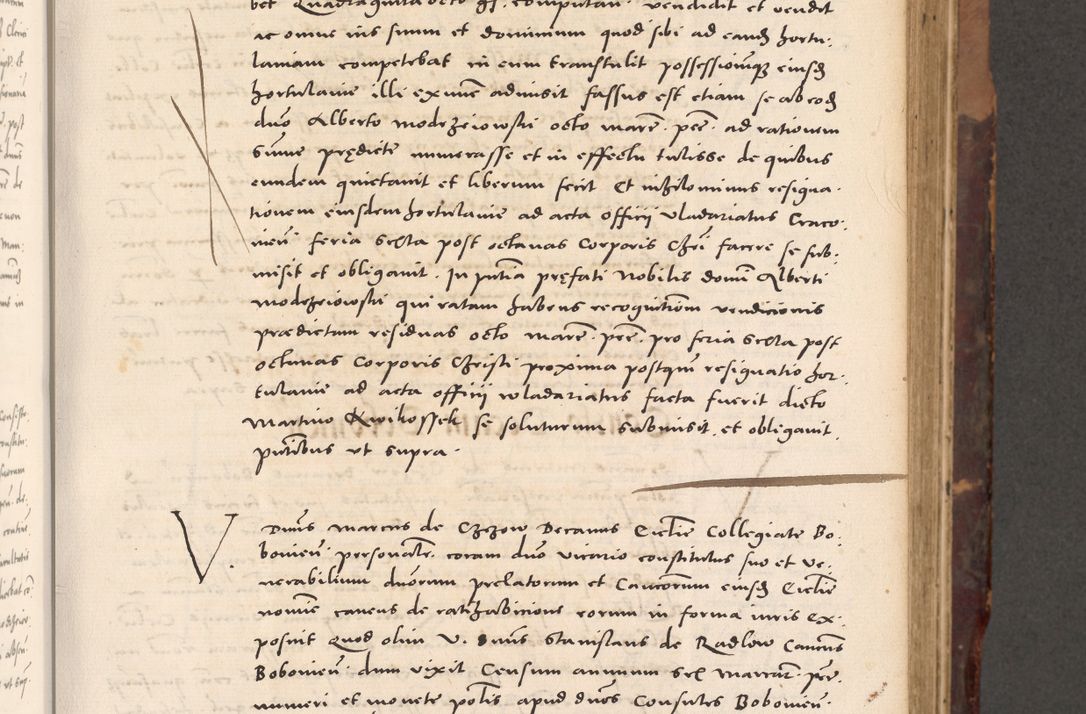 bet Quadraginta octo gr. computan. vendidit et vendit
ac omne ius suum et dominium quod sibi ad eand hortu:
laniam competebat in eum transtulit possessionẽqz eiusd
hortulanie illi exnunc admisit fassus est etiam se ab eod
dno Alberto modrzeiowski octo marc. pec. ad rationem
Sume prędicte numerasse et in effectu tulisse de quibus
eundem quietauit et liberum fecit Et nihilominus resigna.
tionem eiusdem hortulanie ad acta officii vladariatus Craco.
vien feria sexta post octauas Corporis Chri facere se sub.
misit et obligauit. In pntia pręfati Nobilis domi Alberti
modrzeiowski qui ratam habens recognitiom vendicionis
prædictam residuas octo marc. pec. pro feria sexta post
octauas Corporis Christi proxima postqm resignatio hor.
tulanie ad acta officii wladariatus facta fuerit dicto
Martino Kwikossek se soluturum submisit. et obligauit.
pntibus vt supra.
V. Dnus Marcus de Czchow Decanus Ecclie Collegiate Bo:
bouien. personalr. coram dno vicario constitutus suo et ve:
nerabilium dnorum prelatorum et Canconum eiusd Ecclie
nomie cauens de ratihabicione eorum in forma iuris ex:
posuit Quod olim V. Dnus Stanislaus de Radlow Cancus
Bobouien. dum vixit Censum annuum sex Marcar. pec.
numeri et monete polis apud dnos Consules Bobouien.